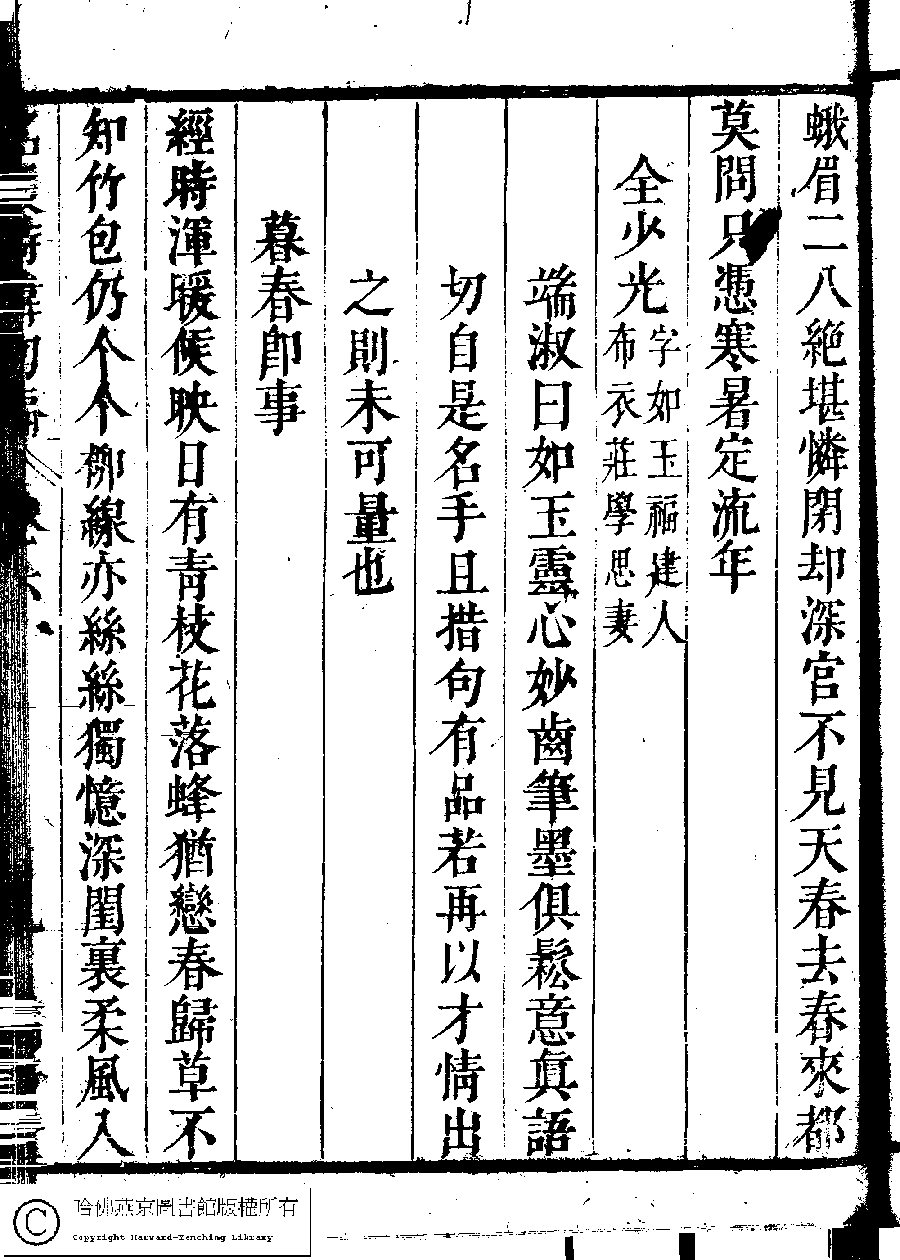 蛾眉二八絶堪憐閉却深宫不見天春去春來都
莫問只憑寒暑定流年
全少光
字如玉福建人
布衣莊學思妻
端淑曰如玉靈心妙齒筆墨俱鬆意眞語
切自是名手且措句有品若再以才情出
之則未可量也
暮春卽事
經時渾暖候映日有青枝花落蜂猶戀春歸草不
知竹包仍个个柳線亦絲絲獨憶深閨裏柔風入
哈佛燕京圖書館版權所有
Copyright Harvard-Yenching Library